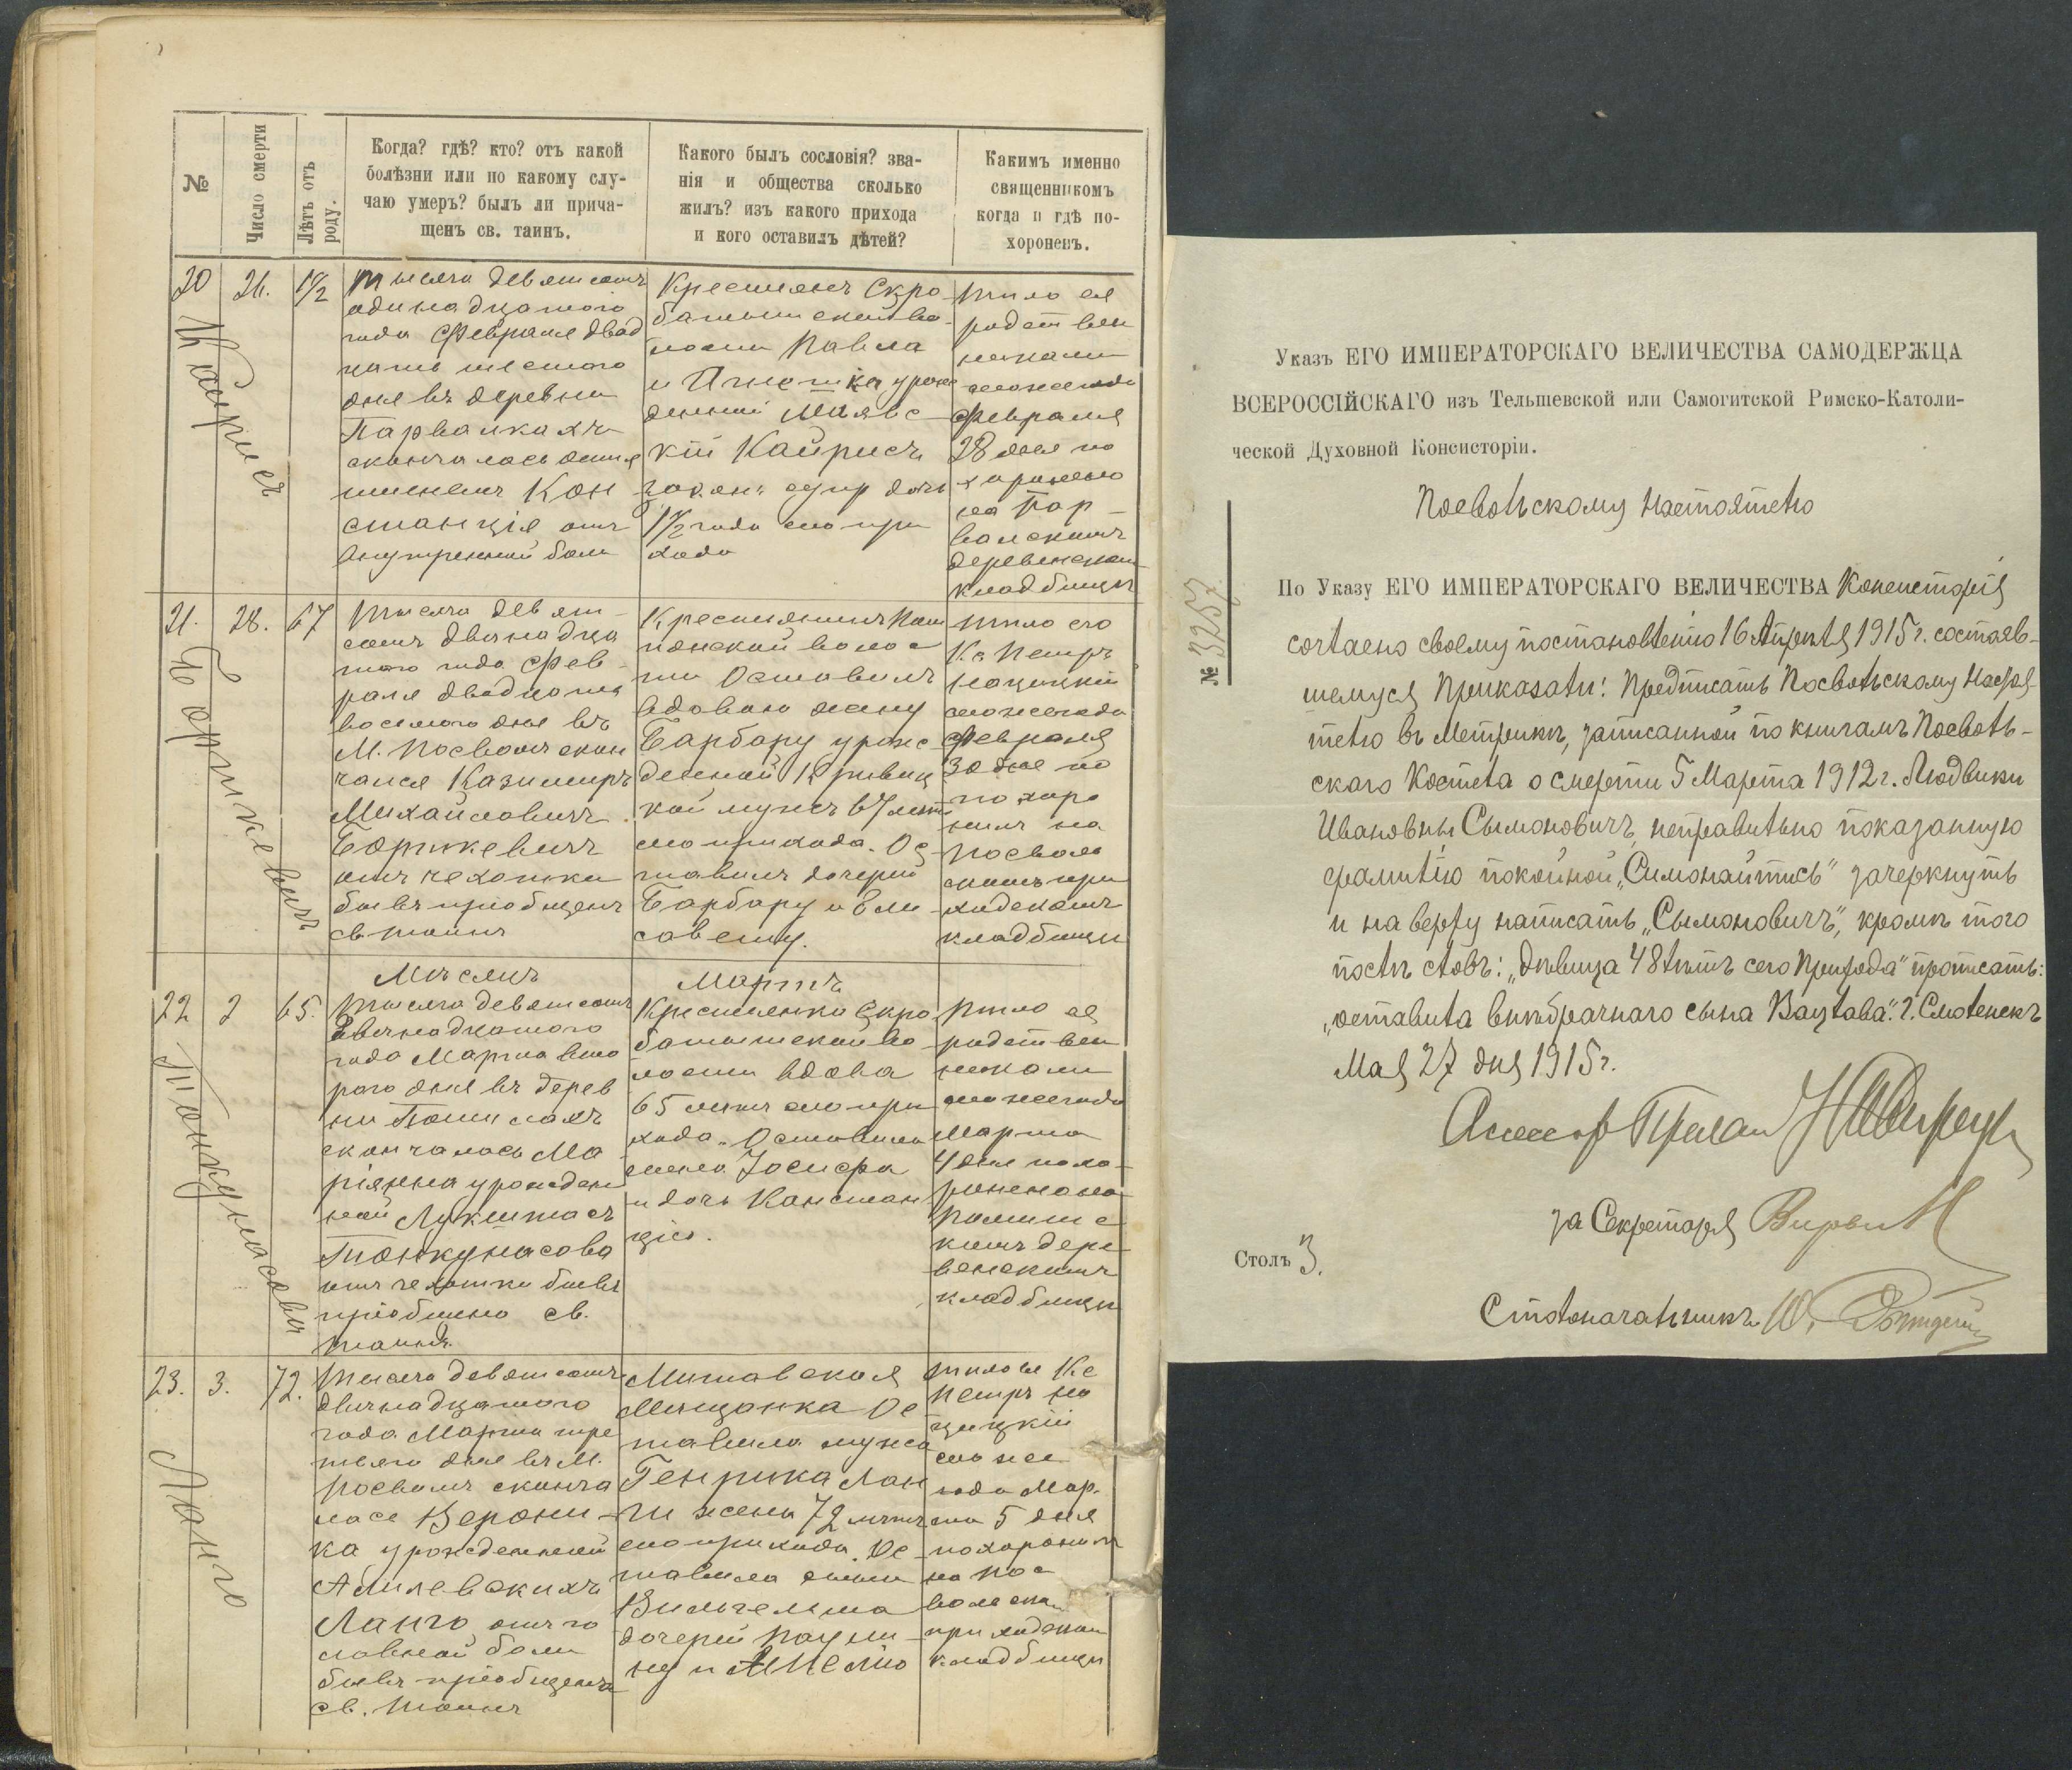 №
Число смерти
Лѣтъ отъ роду.
Когда? гдѣ? кто? отъ какой
болѣзни или по какому слу-
чаю умеръ? былъ ли прича-
щенъ св. таинъ.
Какого былъ сословія? зва-
нія и общества сколько
жилъ? изъ какого прихода
и кого оставилъ дѣтей?
Каким именно
священникомъ
когда и гдѣ по-
хороненъ.
20
26.
1½
Кайрисъ
Тысяча девятьсотъ
одинадцатого
года Февраля двад
цать шестого
дня въ деревни
Парвалкахъ
скончалась
именемъ Кон
станція отъ
внутренней боли
Крестьянъ Скро
батышской во-
лости Павла
и Агнешка урож
денной
кій Кайрисъ
закон. дочь
1½ года сего при
хода
тѣло ея
родствен
никами
того же года
Февраля
28 дня по
хоронено
на Пар-
валскимъ
деревенском
кладбищѣ
21.
28.
67
Боришкевичъ
Тысяча девят-
сотъ двѣнадца
того года Фев-
раля двадцать
восьмого дня въ
М. Посволѣ скон
чался Казимиръ
Михайловичъ
Боришкевичъ
отъ чехотки
бывъ пріобщенъ
св. таинъ
Крестьянинъ
понской волос
ти Оставилъ
вдовою жену
Барбару урож
денной Кривиц
кой мужъ 67 лѣтъ
сего прихода. Ос-
тавилъ дочерей
Барбару и Ели
савету.
тѣло его
Кс Петръ
Нацицкій
того же года
Февраля
30 дня по
похоро
нилъ на
Посволь
скимъ при
ходскомъ
кладбищѣ
Мѣсяцъ Мартъ
22
2
65.
Танкунасова
Тысяча девятьсотъ
двѣнадцатого
года Марта вто
рого дня въ дерев
ни
скончалась Ма
ріянна урожден
ной Лукштасъ
Танкунасова
отъ чехотки бывъ
пріобщено св.
таинъ.
Крестьянка Скро
батышской во
лости вдова
65 лѣтъ сего при
хода. Оставила
сына Іосифа
и дочь Констан
цію.
тѣло ея
родствен
никами
того же года
Марта
4 дня похо-
ронено на
кимъ дере
венскимъ
кладбищѣ
23.
3.
72.
Ланго
Тысяча девятьсотъ
двѣнадцатого
года Марта тре
тьяго дня въ М.
Посволѣ сконча
лась Верони-
ка урожденной
Ланго отъ го
ловной боли
бывъ пріобщена
св. таинъ
Митавская
Мѣщанка Ос
тавила мужа
Генрика Лан
ги жена 72 лѣтъ
сего прихода. Ос-
тавила сына
Вильгельма
дочерей Паули-
ну и
тѣло ея Кс
Петръ На
цицкій
того же
года Мар-
та 5 дня
похоронилъ
на Пос
вольском
приходском
кладбищѣ
Указъ ЕГО ИМПЕРАТОРСКАГО ВЕЛИЧЕСТВА САМОДЕРЖЦА
ВСЕРОССІЙСКАГО изъ Тельшевской или Самогитской Римско-Католи-
ческой Духовной Консисторіи.
Посвольскому Настоятелю
№ 3257
По Указу ЕГО ИМПЕРАТОРСКАГО ВЕЛИЧЕСТВА Консисторія
согласно своему постановленію 16 Апрѣля 1915 г. состояв-
шемуся Приказали: Предписать Посвольскому Настоя-
телю въ Метрикѣ, записанной по книгамъ Посволь-
скаго Костела о смерти 5 Марта 1912 г. Людвики
Ивановны Сымоновичъ, неправильно показанную
фамилію покойной „Симонайтись" зачеркнуть
и на верху написать „Сымоновичъ", кромѣ того
послѣ словъ: „дѣвица 48 лѣтъ сего Прихода" прописать:
„оставила внѣбрачнаго сына Вацлава". г. Смоленскъ
Мая 27 дня 1915 г.
Ассесоръ Прелат
за Секретаря
Столъ 3.
Столоначальникъ Ю.